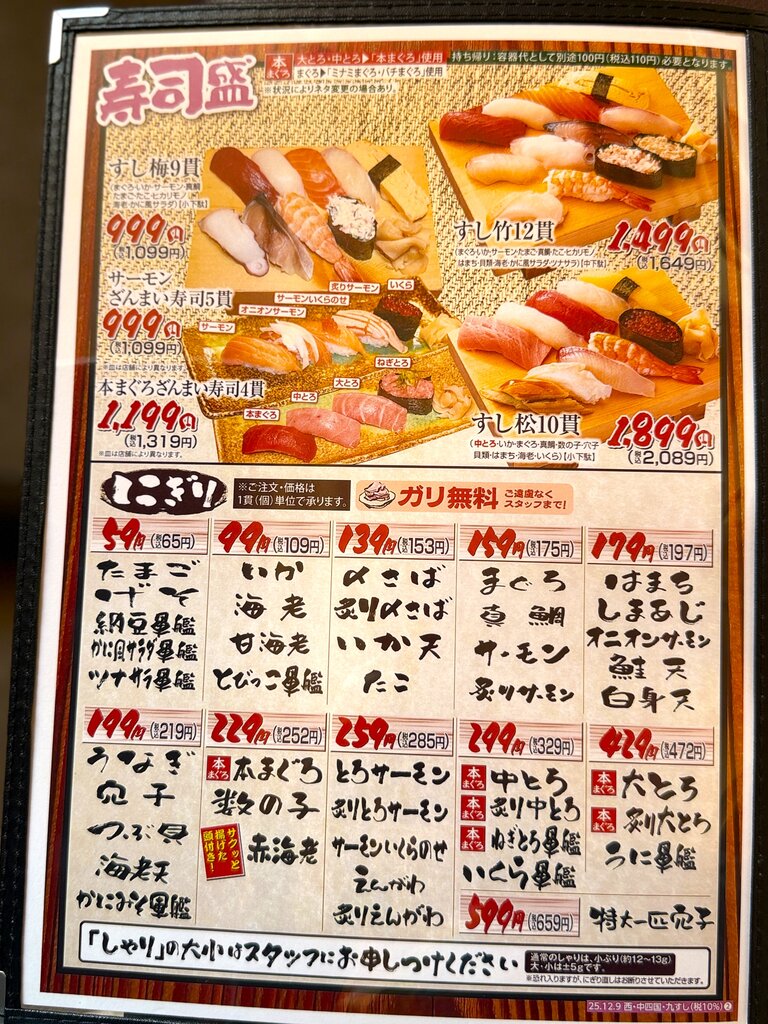 寿司盛
本まぐろ
大とろ・中とろ▶「本まぐろ」使用
まぐろ▶「ミナミまぐろ・バチまぐろ」使用
※状況によりネタ変更の場合あり。
持ち帰り:容器代として別途100円(税込110円)必要となります。
すし梅9貫
(まぐろ・いか・サーモン・真鯛
たまご・たこ・ヒカリモノ
海老・かに風サラダ)【小下駄】
999円
(税込1,099円)
すし竹12貫
(まぐろ・いか・サーモン・たまご・真鯛・たこ・ヒカリモノ
はまち・貝類・海老・かに風サラダ・ツナサラダ)【中下駄】
1,499円
(税込1,649円)
サーモン
ざんまい寿司5貫
999円
(税込1,099円)
※皿は店舗により異なります。
サーモン
オニオンサーモン
サーモンいくらのせ
炙りサーモン
いくら
本まぐろざんまい寿司4貫
1,199円
(税込1,319円)
※皿は店舗により異なります。
本まぐろ
中とろ
大とろ
ねぎとろ
すし松10貫
(中とろ・いか・まぐろ・真鯛・数の子・穴子
貝類・はまち・海老・いくら)【小下駄】
1,899円
(税込2,089円)
にぎり
※ご注文・価格は
1貫(個)単位で承ります。
ガリ無料
ご遠慮なく
スタッフまで!
59円(税込65円)
たまご
げそ
納豆軍艦
かに風サラダ軍艦
ツナサラダ軍艦
99円(税込109円)
いか
海老
甘海老
とびっこ軍艦
139円(税込153円)
〆さば
炙り〆さば
いか天
たこ
159円(税込175円)
まぐろ
真鯛
サーモン
炙りサーモン
179円(税込197円)
はまち
しまあじ
オニオンサーモン
鮭天
白身天
199円(税込219円)
うなぎ
穴子
つぶ貝
海老天
かにみそ軍艦
229円(税込252円)
本まぐろ 本まぐろ
数の子
サクッと揚げた頭付き!
赤海老
259円(税込285円)
とろサーモン
炙りとろサーモン
サーモンいくらのせ
えんがわ
炙りえんがわ
299円(税込329円)
本まぐろ 中とろ
本まぐろ 炙り中とろ
本まぐろ ねぎとろ軍艦
いくら軍艦
429円(税込472円)
本まぐろ 大とろ
本まぐろ 炙り大とろ
うに軍艦
599円(税込659円)
特大一匹穴子
「しゃり」の大小はスタッフにお申しつけください
通常のしゃりは、小ぶり(約12〜13g)
大・小は±5gです。
※恐れ入りますが、にぎり直しはお断りさせていただきます。
25.12.9 西・中四国・九すし(税10%)❷